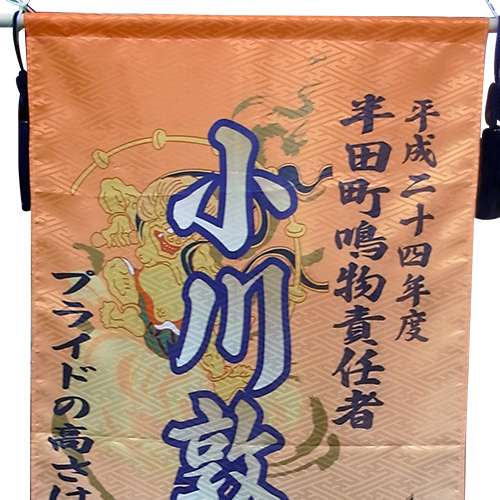 平成二十四年度
半田町鳴物責任者
小川敦
プライドの高さは